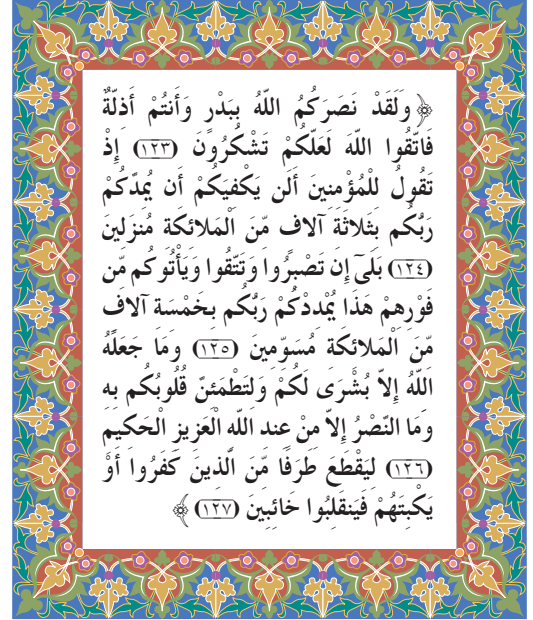 ﴿ وَلَقَدْ نَصَرَكُمُ اللّهُ بِبَدْرٍ وَأَنتُمْ أَذِلَّةٌ
فَاتَّقُوا اللّه لَعَلّكُمْ تَشْكُرُونَ (١٢٣) إِذْ
تَقُولُ لِلْمُؤْمِنِينَ أَلَن يَكْفِيَكُمْ أَن يُمِدّكُمْ
رَبُّكُم بِثَلاثَةِ آلافٍ مّنَ الْمَلائِكَةِ مُنزَلِينَ
(١٢٤) بَلَىَ إِن تَصْبِرُوا وَتَتّقُوا وَيَأْتُوكُم مّن
فَوْرِهِمْ هَذَا يُمْدِدْكُمْ رَبُّكُم بِخَمْسَةِ آلافٍ
مّنَ الْمَلائِكَةِ مُسَوّمِين (١٢٥) وَمَا جَعَلَهُ
اللّهُ إِلاّ بُشْرَى لَكُمْ وَلِتَطْمَئِنّ قُلُوبُكُم بِهِ
وَمَا النّصْرُ إِلاّ مِنْ عِندِ اللّهِ الْعَزِيزِ الْحَكِيمِ
(١٢٦) لِيَقْطَعَ طَرَفًا مّنَ الّذِينَ كَفَرُوا أَوْ
يَكْبِتَهُمْ فَيَنقَلِبُوا خَائِبِينَ (١٢٧) ﴾